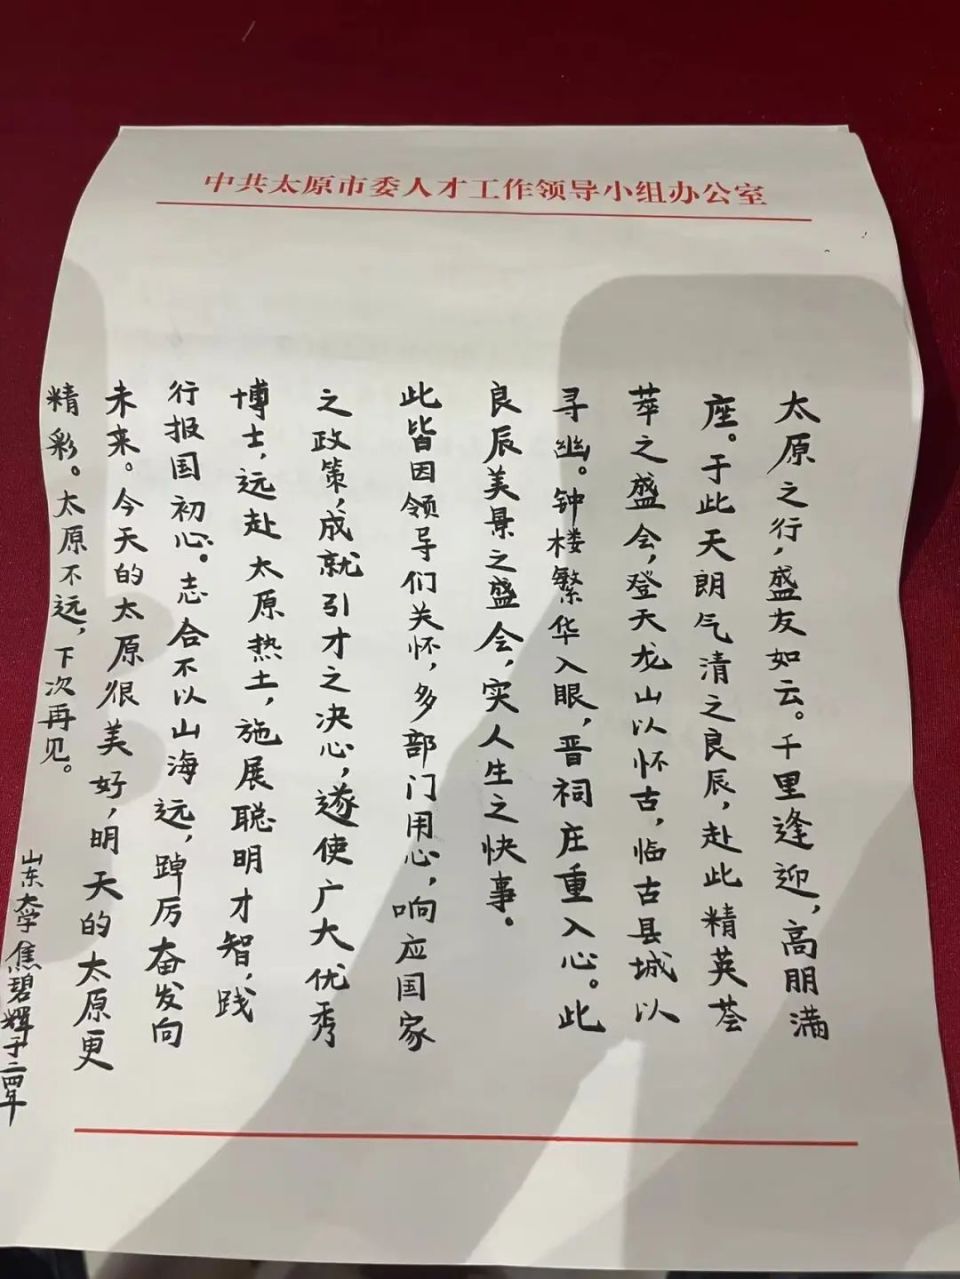 中共太原市委人才工作领导小组办公室
太原之行,盛友如云。千里逢迎,高朋满
座。于此天朗气清之良辰,赴此精英荟
萃之盛会,登天龙山以怀古,临古县城以
寻幽。钟楼繁华入眼,晋祠庄重入心。此
良辰美景之盛会,实人生之快事。
此皆因领导们关怀,多部门用心,响应国家
之政策,成就引才之决心,遂使广大优秀
博士,远赴太原热土,施展聪明才智,践
行报国初心。志合不以山海远,踔厉奋发向
未来。今天的太原很美好,明天的太原更
精彩。太原不远,下次再见。
山东大学焦碧辉于二四年